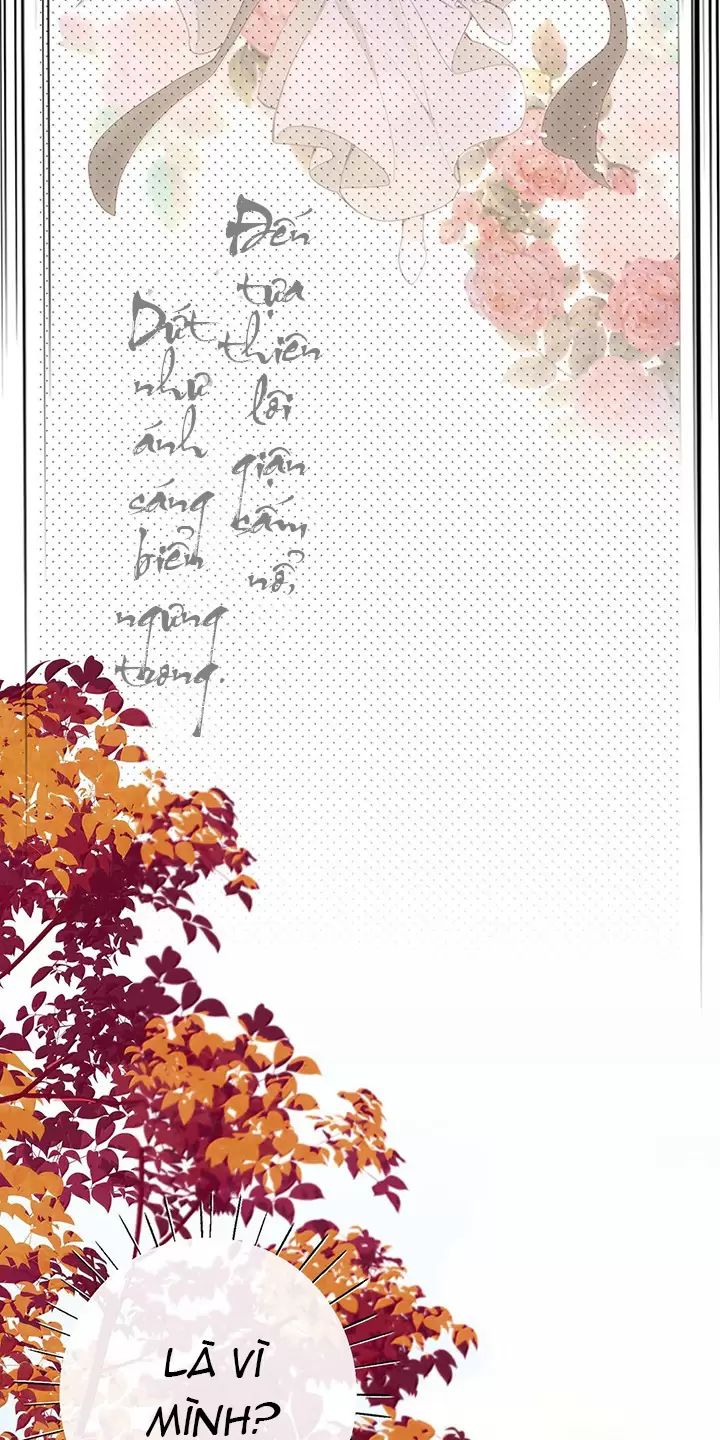 Đến tựa thiên lôi giận sấm nổ,
Dứt như ánh sáng biển ngưng trong.
LÀ VÌ
MÌNH?